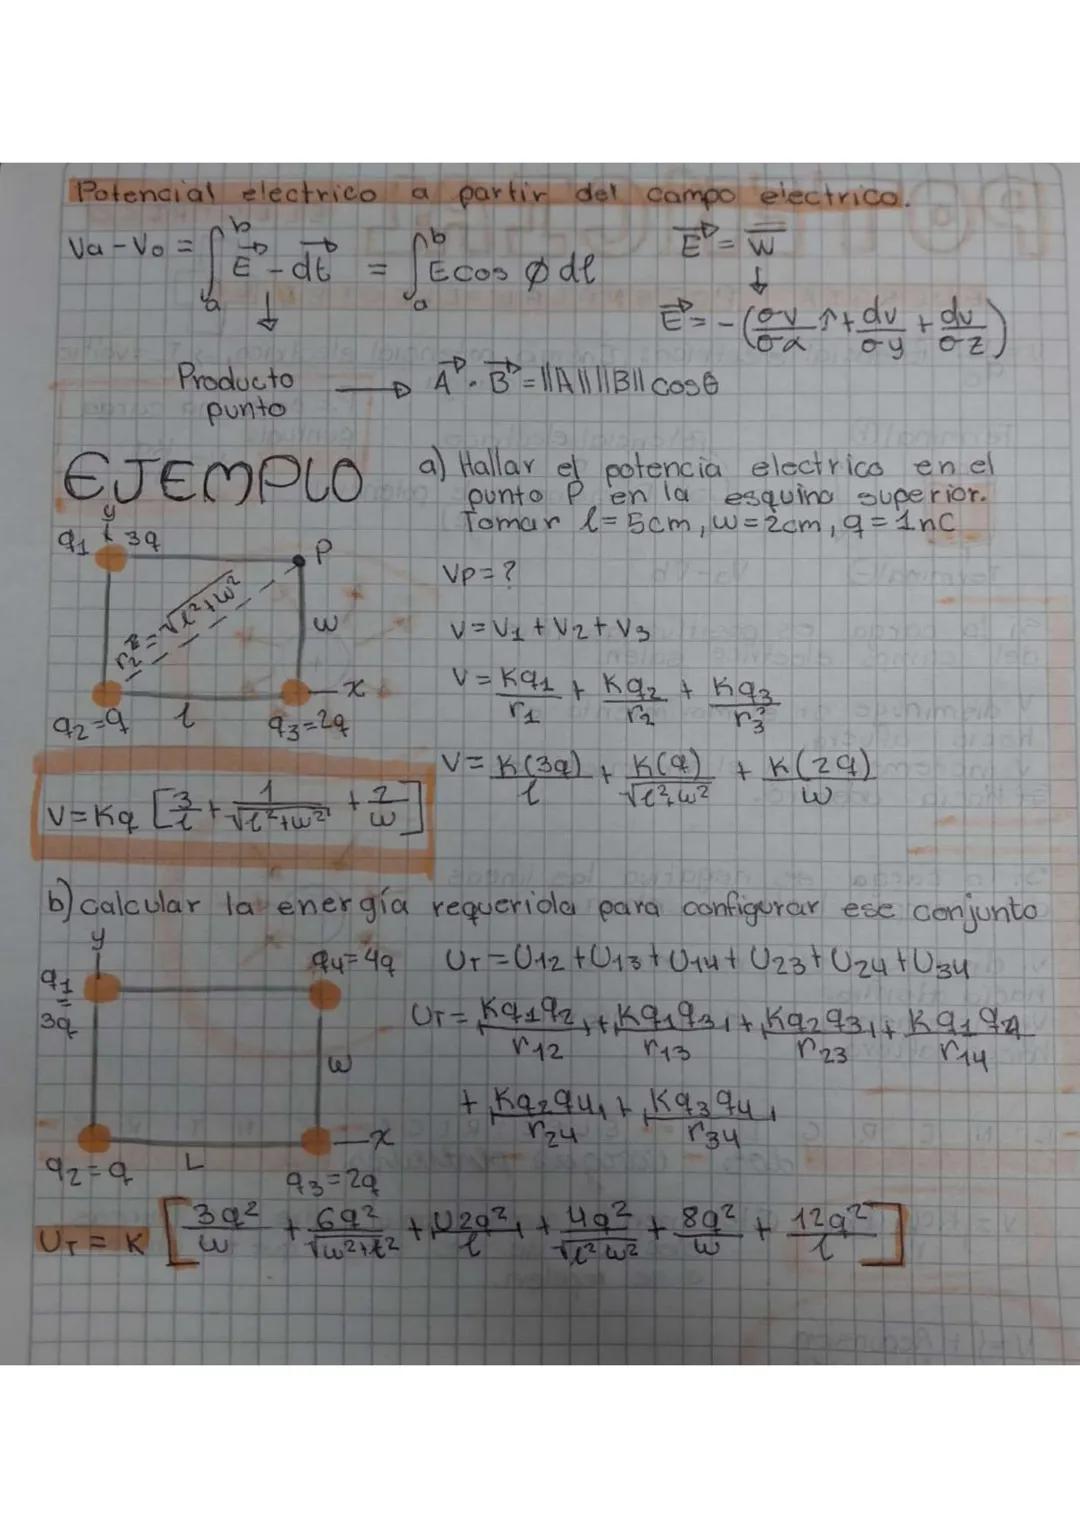 Potencial electrico a partir del campo electrico.
Va - Vo = ∫ₐᵇ E⃗ - dt⃗ = ∫ₐᵇ E cos ϕ dl
E⃗ = w
↓
E⃗ = - (σv/σx ↑ + dv/σy + dv/σz)
Producto punto → A⃗ · B⃗ = ||A|| ||B|| cosθ
EJEMPLO
a) Hallar el potencia electrico en el
punto P en la esquina superior.
Tomar l = 5cm, w = 2cm, q = 1nC
y
q1 3q
P
r2 = √l²+w²
w
x
q2=q l q3=2q
Vp = ?
V = V1 + V2 + V3
V = Kq1/r1 + Kq2/r2 + Kq3/r3²
V = K(3q)/l + K(q)/√l²+w² + K(2q)/w
V = Kq [3/l + 1/√l²+w² + 2/w]
b) calcular la energía requerida para configurar ese conjunto
y
q1 = 3q
q4 = 4q
w
x
q2 = q L q3 = 2q
UT = U12 + U13 + U14 + U23 + U24 + U34
UT = Kq1q2/r12 + Kq1q3/r13 + Kq2q3/r23 + Kq1q4/r14
+ Kq2q4/r24 + Kq3q4/r34
UT = K [3q²/w + 6q²/√w²+l² + U2q²/l + 4q²/√l² w² + 8q²/w + 12q²/l]